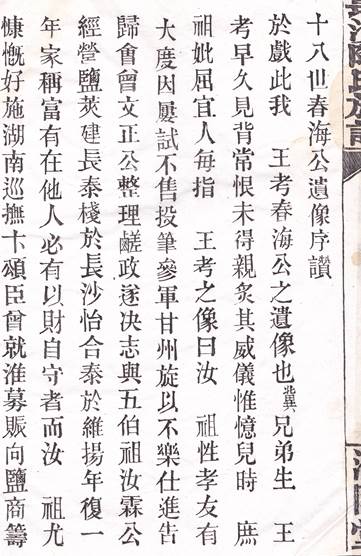 十八世春海公遺像序讚
於戲此我 王考春海公之遺像也冀兄弟生 王
考早久見背常恨未得親炙其威儀惟憶兒時 庶
祖妣屈宜人每指 王考之像曰汝 祖性孝友有
大度因屢試不售投筆參軍甘州旋以不樂仕進告
歸會曾文正公整理鹺政遂決志與五伯祖汝霖公
經營鹽莢建長泰棧於長沙怡合泰於維揚年復一
年家稱富有在他人必有以財自守者而汝 祖尤
慷慨好施湖南巡撫卞頌臣曾就淮募賑向鹽商籌